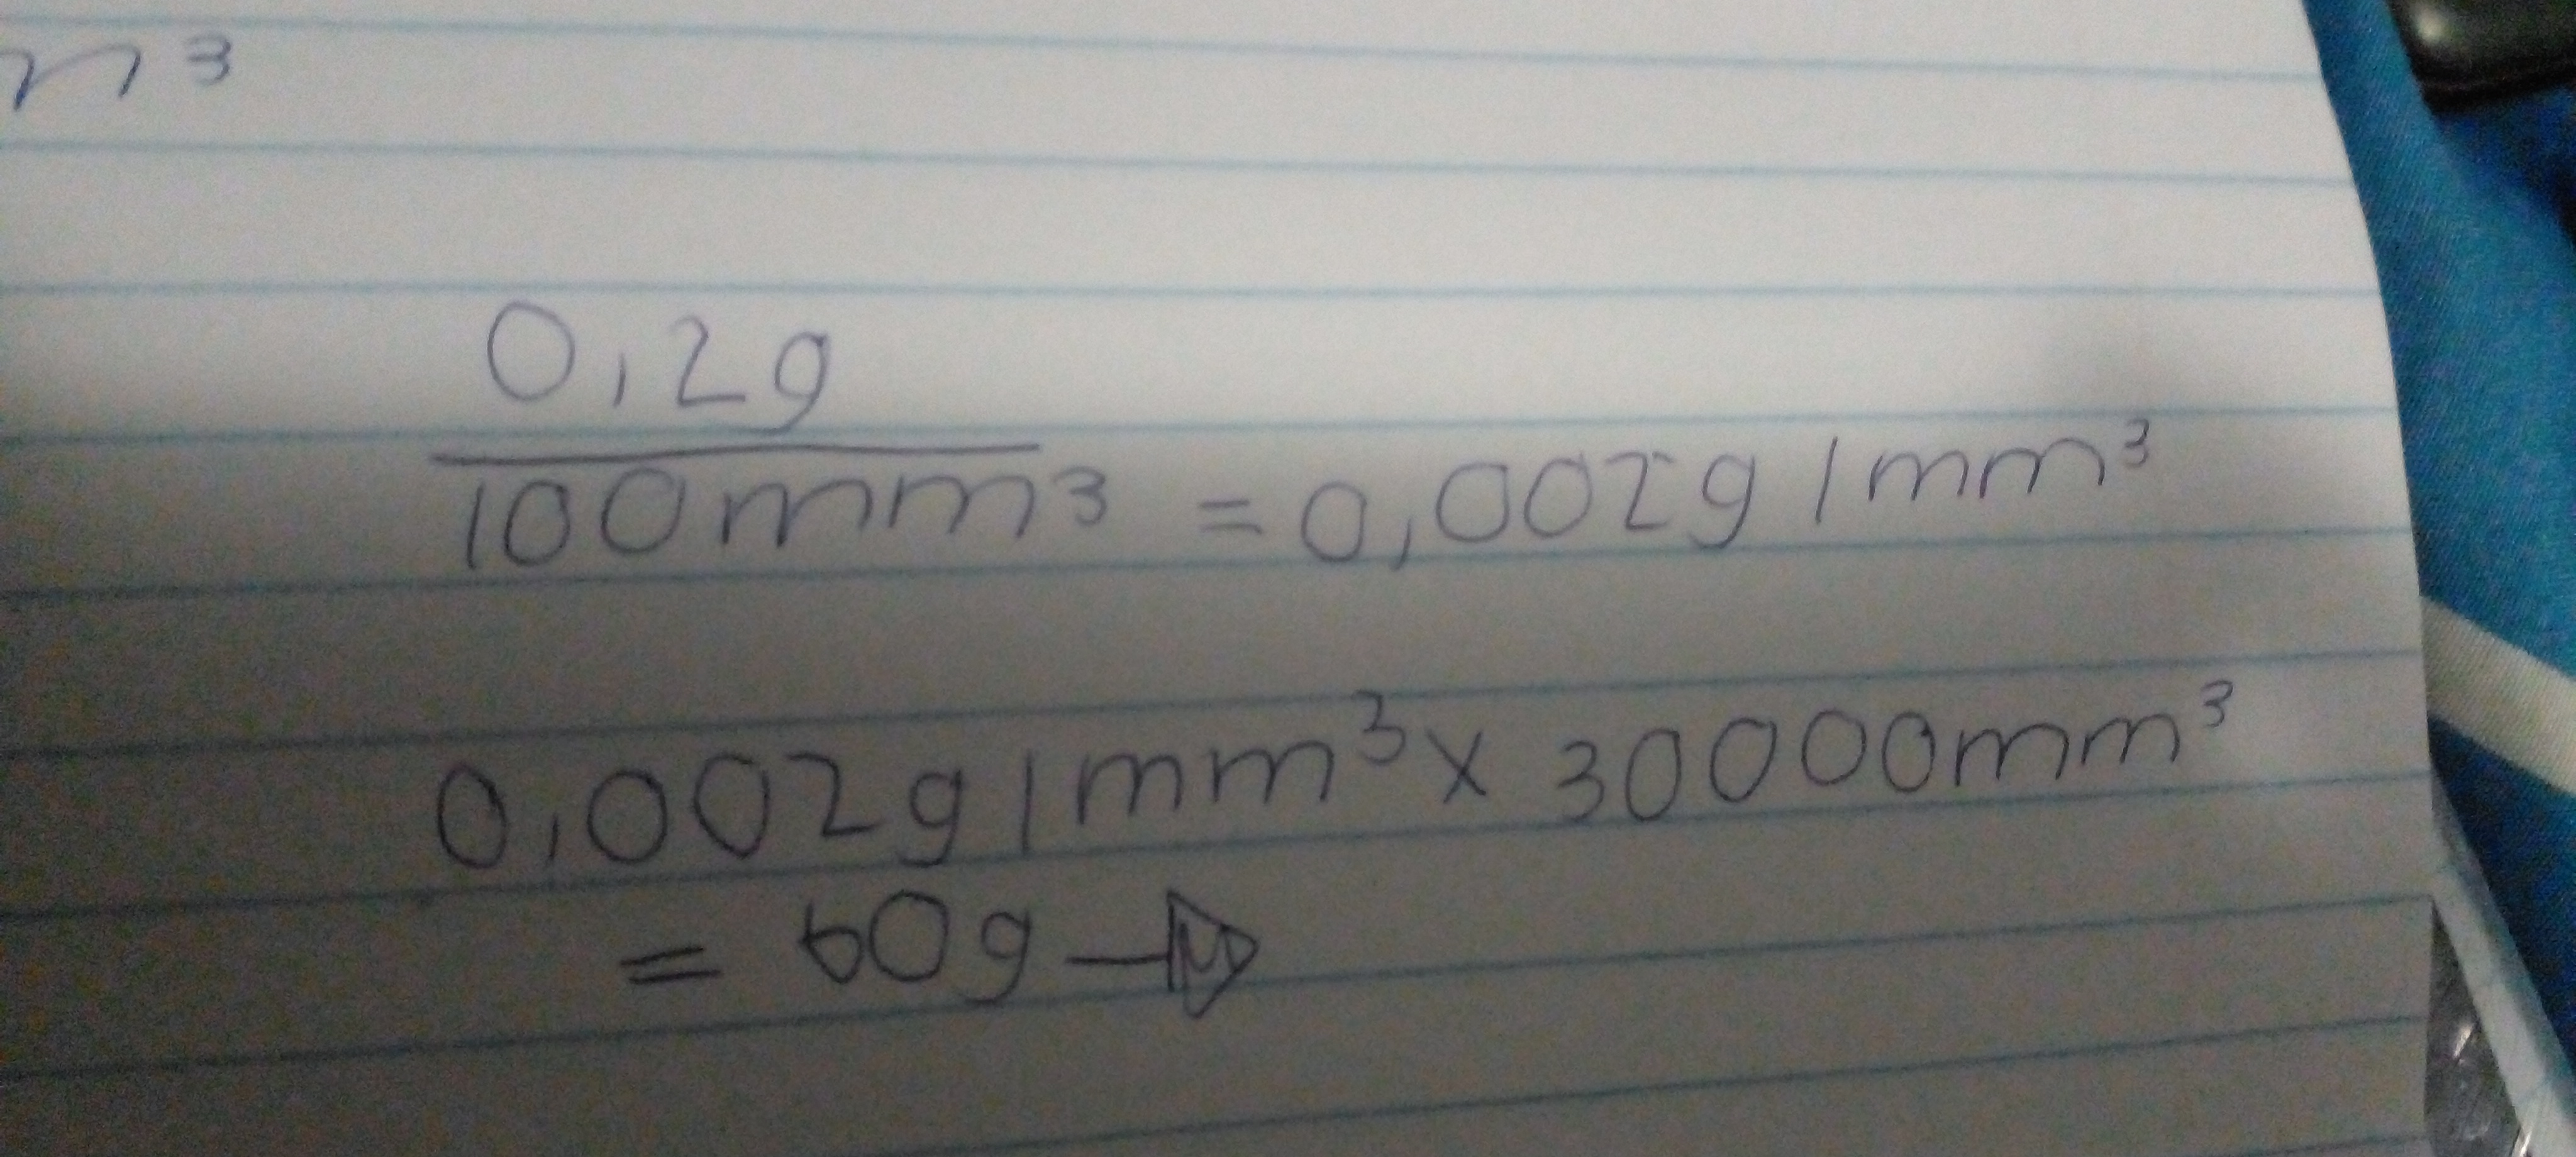 m³
0,2g
100mm³ = 0,002g/mm³
0,002g/mm³ x 30000mm³
= 60g